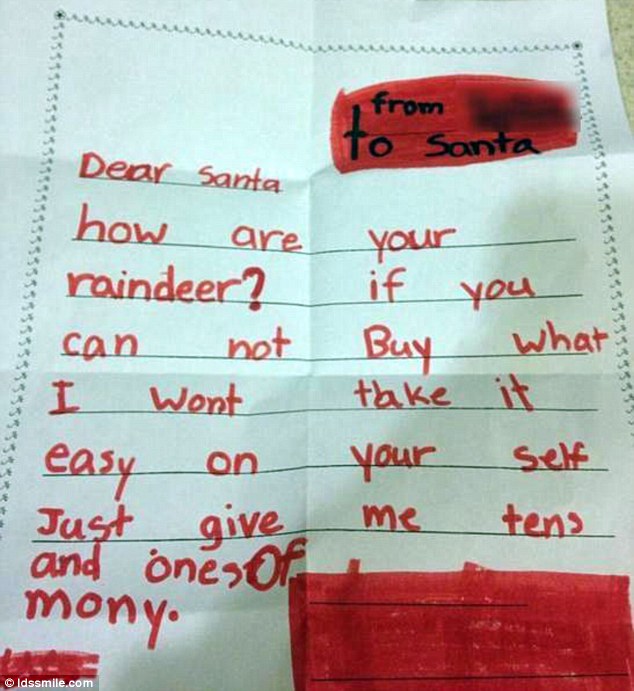 from
to Santa
Dear Santa
how are your
raindeer? if you
can not Buy what
I wont take it
easy on your self
Just give me tens
and ones Of
mony.
© ldssmile.com